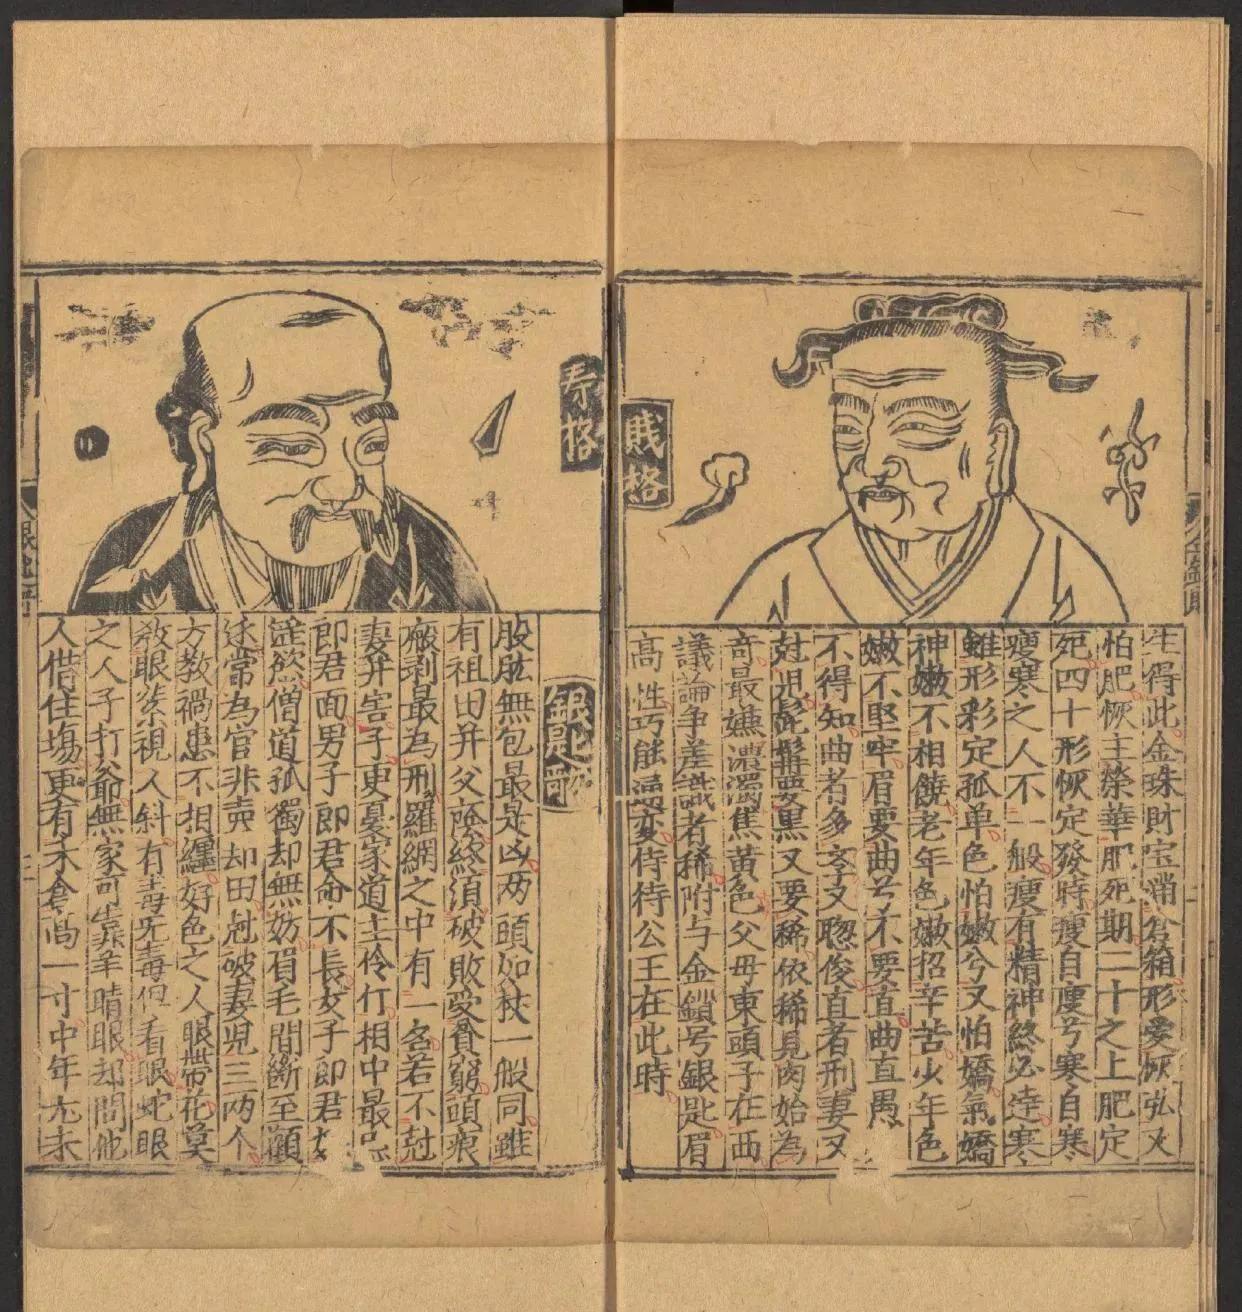 賎格
生得此金珠財宝滿倉箱形要恢弘又
怕肥恢主榮華肥死期二十之上肥定
死四十形恢定發時瘦自瘦兮寒自寒
瘦寒之人不一般瘦有精神終必達寒
雖形彩定孤单色怕嫩兮又怕嬌氣嬌
神嫩不相饒老年色嫩招辛苦少年色
嫩不堅牢眉要曲兮不要直曲直愚
不得知曲者多学又聡俊直者刑妻又
尅児髭髯要黒又要稀依稀見肉始為
竒最嫌濃濁焦黄色父母東頭子在西
議論争差識者稀附与金鎖号銀匙眉
高性巧能通変侍待公王在此時
寿格
銀匙歌
股肱無包最是凶两頭如杖一般同雖
有祖田并父䕃終湏破敗受貧窮頭痕
瘢剥最為刑羅網之中有一名若不尅
妻并害子更憂家道主伶仃相中最
即君面男子即君命不長女子即君
滛慾僧道孤獨却無妨眉毛間断至顴
邊常為官非卖却田尅破妻児三两个
方教禍患不相纏好色之人眼帶花莫
教眼𦂳視人斜有毒无毒但看眼蛇眼
之人子打爺無家可靠羊睛眼却問他
人借住塲更有禾倉高一寸中年尢未